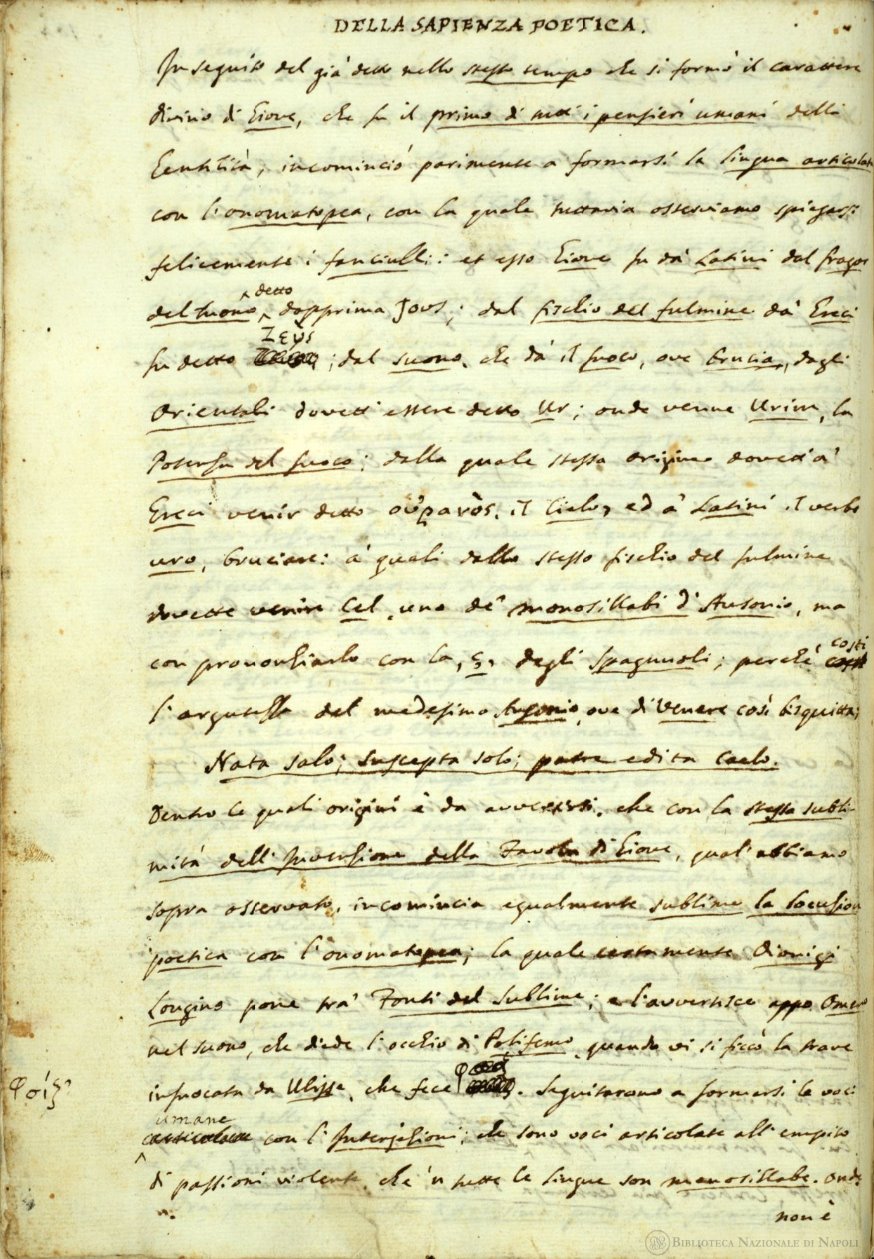 DELLA SAPIENZA POETICA.
In seguito del già detto nello stesso tempo che si formò il carattere
divino di Giove, che fu il primo di tutt' i pensieri umani della
Gentilità, incominciò parimente a formarsi la lingua articolata
con l'onomatopea, con la quale tuttavia osserviamo spiegarsi
felicemente i fanciulli: et esso Giove fu da' Latini dal fragor
detto
del tuono dapprima Jous; dal fischio del fulmine da' Greci
Ζεὺς
fu detto ; dal suono, che dà il fuoco, ove brucia, dagli
Orientali dovett' essere detto Ur; onde venne Urim, la
Potenza del fuoco; dalla quale stessa origine dovett' a'
Greci venir detto οὐρανὸς, il Cielo, ed a' Latini il verbo
uro, bruciare: a' quali dallo stesso fischio del fulmine
dovette venire Cel, uno de' monosillabi d'Ausonio, ma
costi
con pronontiarlo con la, ç, degli Spagnuoli; perchè
l'argutezza del medesimo Ausonio, ove di Venere così bisquitta;
Nata salo; suscepta solo; patre edita caelo.
Dentro le quali origini è da avvertirsi, che con la stessa subli-
mità dell'Invenzione della Favola di Giove, qual' abbiamo
sopra osservato, incomincia egualmente sublime la locuzion
poetica con l'onomatopea; la quale certamente Dionigi
Longino pone tra' Fonti del Sublime; e l'avvertisce appo Omero
nel suono, che diede l'occhio di Polifemo, quando vi si ficcò la trave
φσίζ'
infuocata da Ulisse, che fece . Seguitarono a formarsi le voci
umane
con l'Interjezioni; che sono voci articolate all'empito
di passioni violente, che 'n tutte le lingue son monosillabe. Onde
non è
BIBLIOTECA NAZIONALE DI NAPOLI